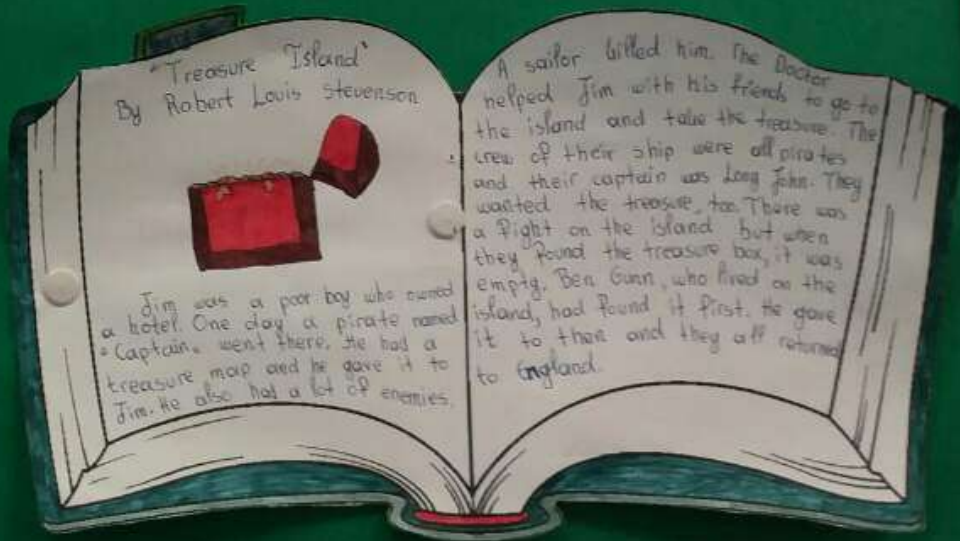 "Treasure Island"
By Robert Louis Stevenson
Jim was a poor boy who owned
a hotel. One day a pirate named
"Captain" went there. He had a
treasure map and he gave it to
Jim. He also had a lot of enemies.
A sailor killed him. The Doctor
helped Jim with his friends to go to
the island and take the treasure. The
crew of their ship were all pirates
and their captain was Long John. They
wanted the treasure, too. There was
a fight on the island but when
they found the treasure box, it was
empty. Ben Gunn, who lived on the
island, had found it first. He gave
it to them and they all returned
to England.